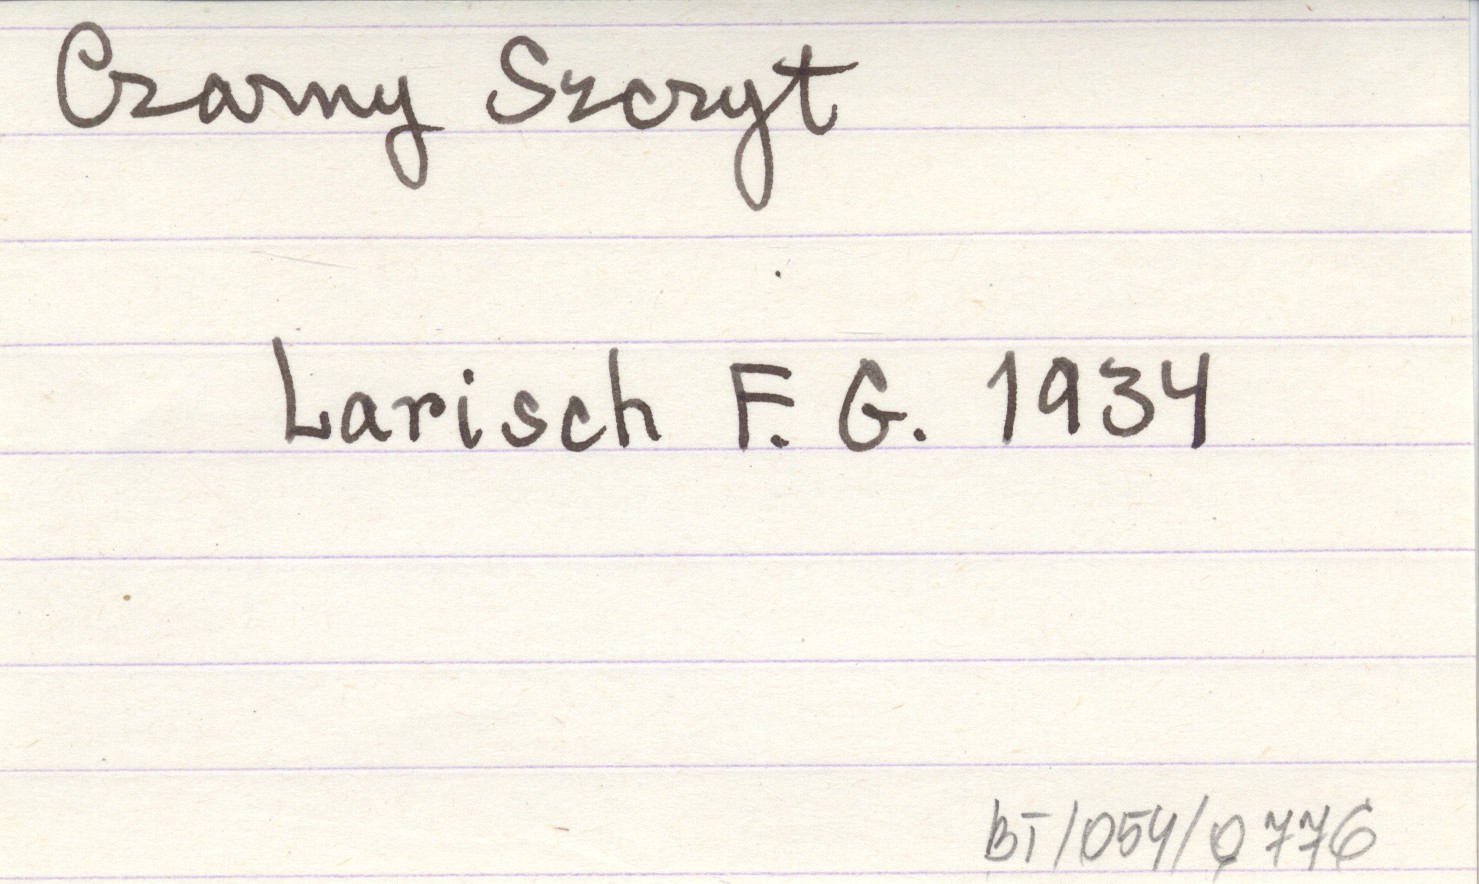 Czarny Szczyt
Larisch F. G. 1934
BT/054/0776